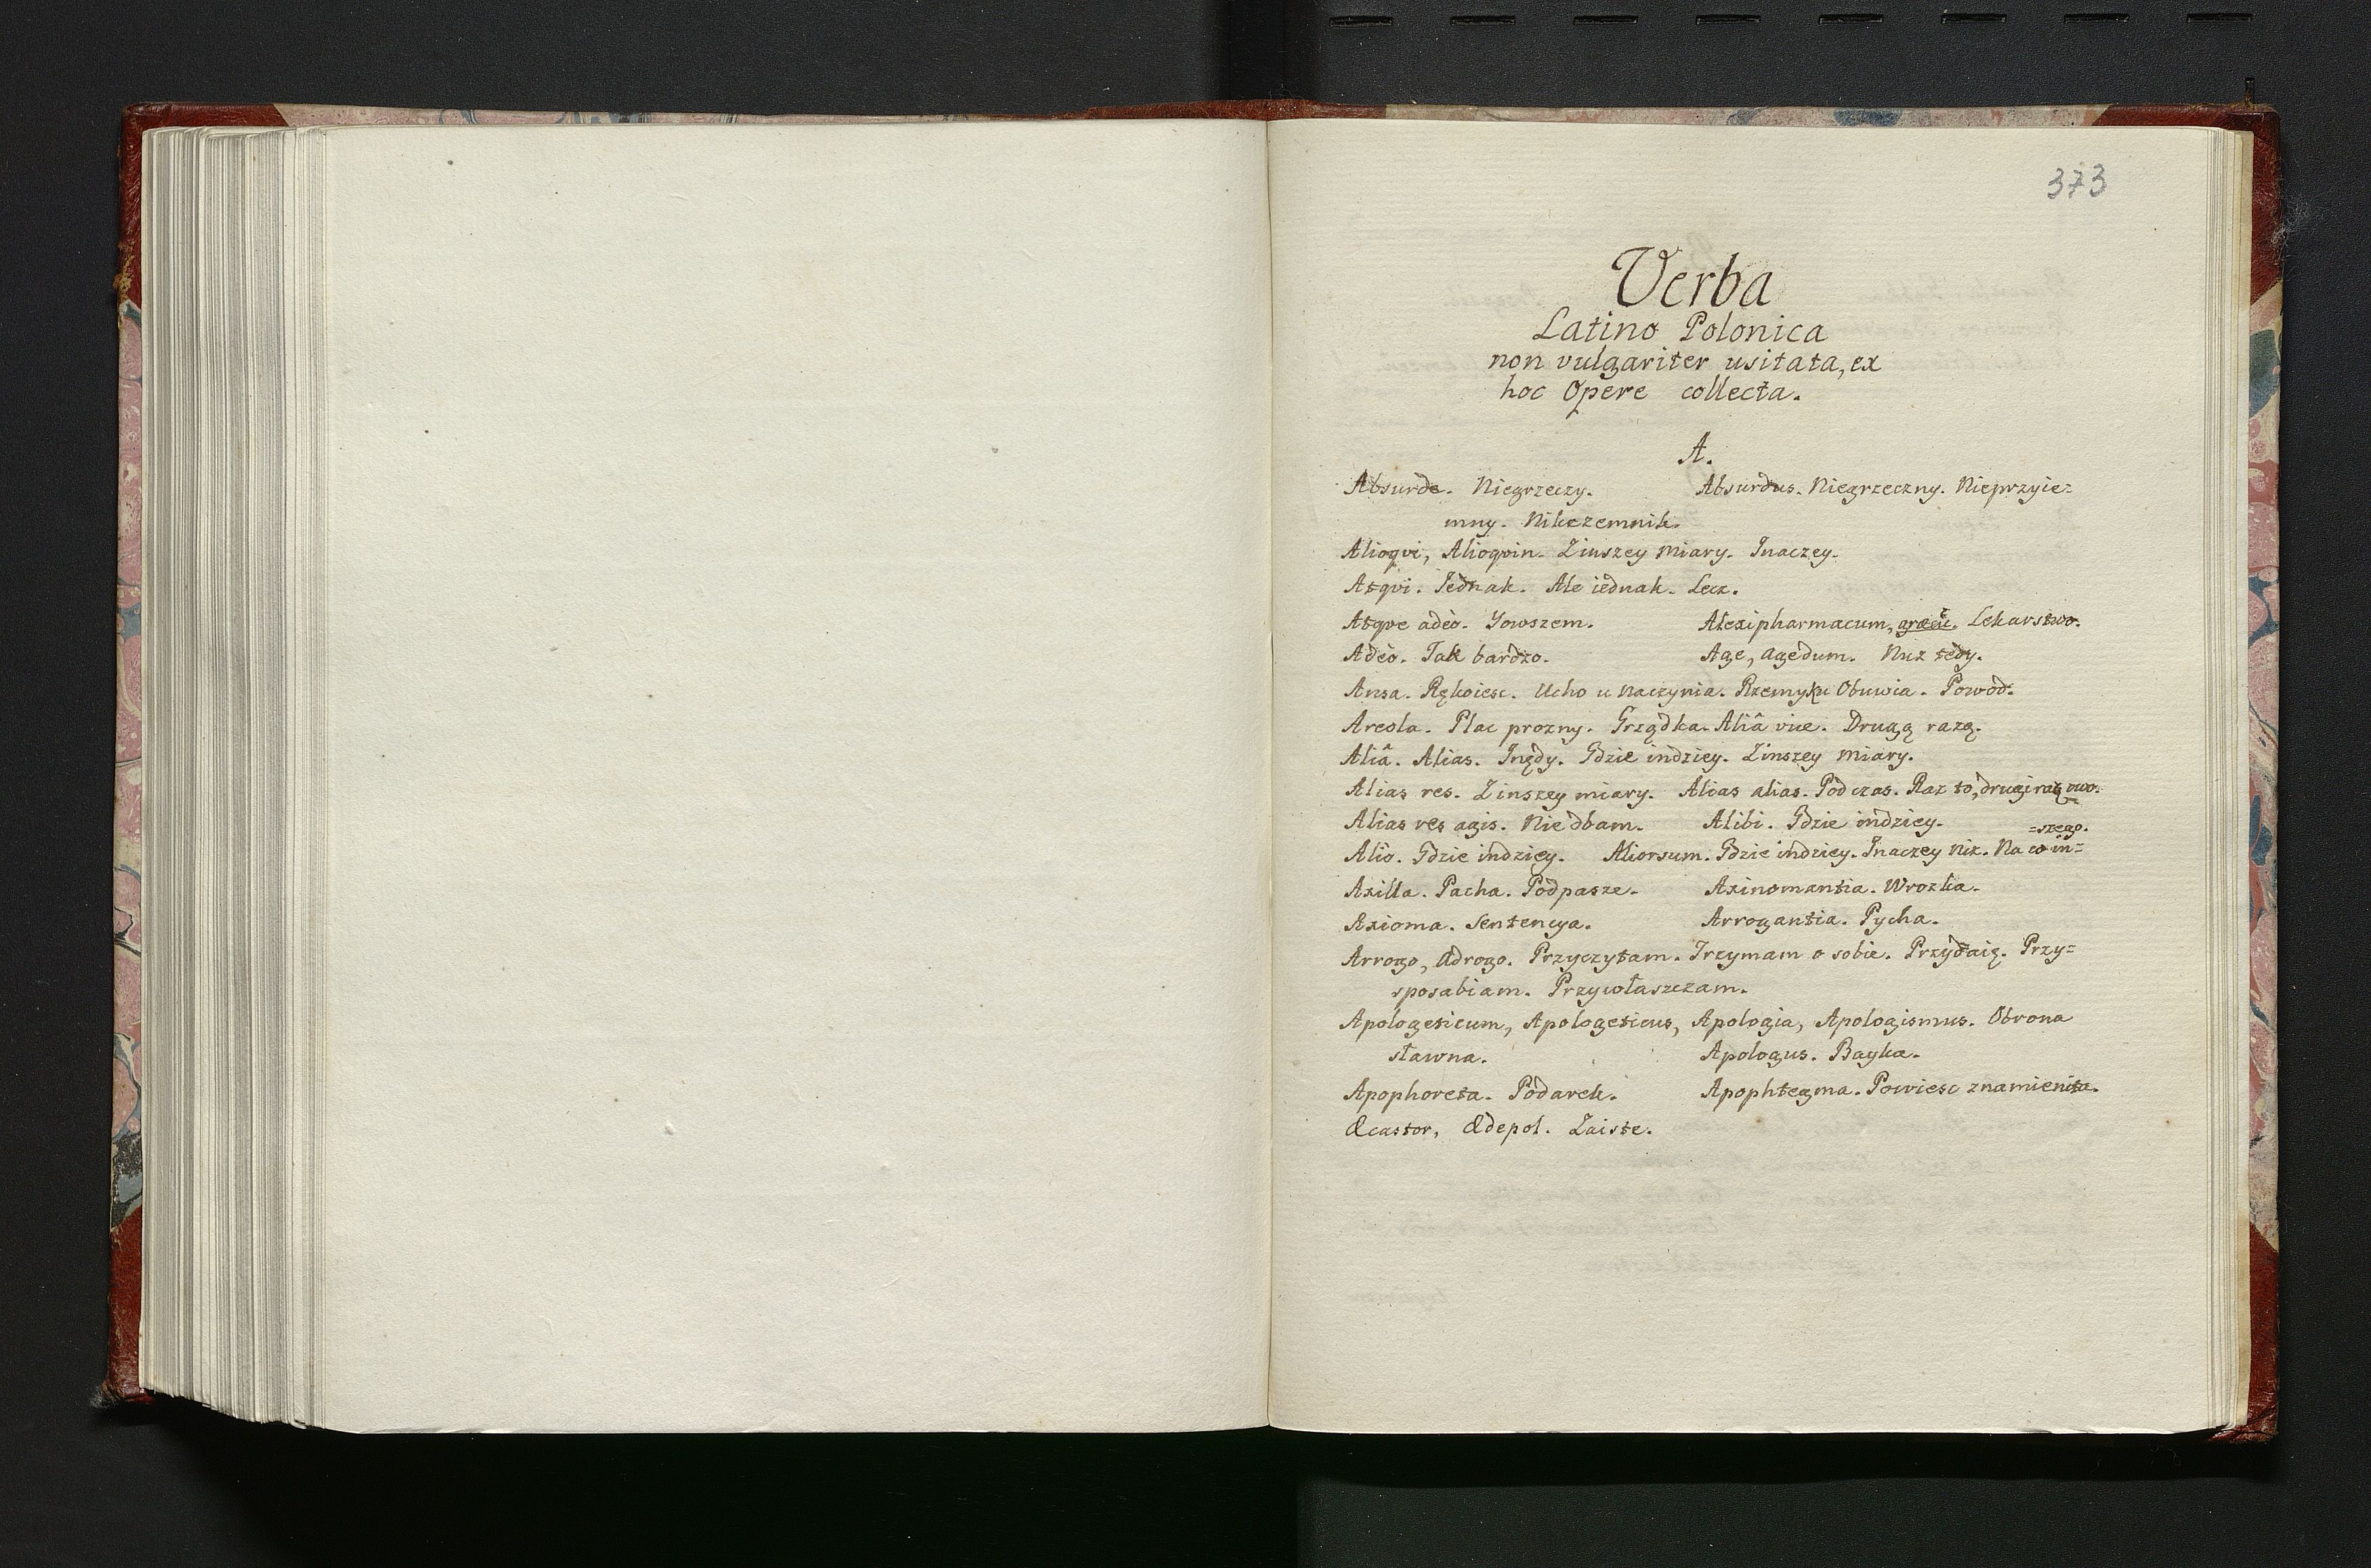 373
Verba
Latino Polonica
non vulgariter usitata, ex
hoc Opere collecta.
A.
Absurde. Niegrzeczy. Absurdus. Niegrzeczny. Nieprzyie=
mny. Nikczemnik.
Alioqvi, Alioqvin. Zinszey miary. Inaczey.
Atqvi. Jednak. Ale iednak. Lecz.
Atqve adèo. Yowszem. Alexipharmacum, græcè. Lekarstwo.
Adèo. Tak bardzo. Age, agedum. Nuz tedy.
Ansa. Rękoiesc. Ucho u naczynia. Rzemyk u Obuwia. Powod.
Areola. Plac prozny. Grządka. Aliâ vice. Drugą razą.
Aliâ. Alias. Inędy. Gdzie indziey. Zinszey miary.
Alias res. Zinszey miary. Alias alias. Podczas. Raz to, drugi raz owo.
Alias res agis. Nie dbam. Alibi. Gdzie indziey.
Alio. Gdzie indziey. Aliorsum. Gdzie indziey. Inaczey niz. Na co in=
=szego.
Axilla. Pacha. Podpasze. Axinomantia. Wrozka.
Axioma. Sentencya. Arrogantia. Pycha.
Arrogo, adrogo. Przyczytam. Trzymam o sobie. Przydaię. Przy=
sposabiam. Przywłaszczam.
Apologeticum, Apologeticus, Apologia, Apologismus. Obrona
sławna. Apologus. Bayka.
Apophoreta. Podarek. Apophtegma. Powiesc znamienita.
Æcastor, Ædepol. Zaiste.